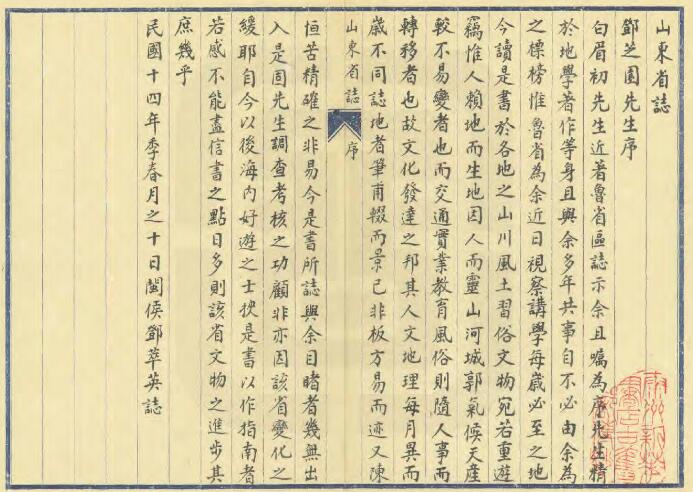 山東省誌
鄧芝園先生序
白眉初先生近著魯省區誌示余且囑為序先生精
於地學著作等身且與余多年共事自不必由余為
之標榜惟魯省為余近日視察講學每歲必至之地
今讀是書於各地之山川風土習俗文物宛若重遊
竊惟人賴地而生地因人而靈山河城郭氣候天產
較不易變者也而交通實業教育風俗則隨人事而
轉移者也故文化發達之邦其人文地理每月異而
歲不同誌地者筆甫輟而景已非板方易而迹又陳
山東省誌 序
恒苦精確之非易今是書所誌與余目睹者幾無出
入是固先生調查考核之功顧非亦因該省變化之
緩耶自今以後海內好遊之士挾是書以作指南者
若感不能盡信書之點日多則該省文物之進步其
庶幾乎
民國十四年季春月之十日閩侯鄧萃英誌